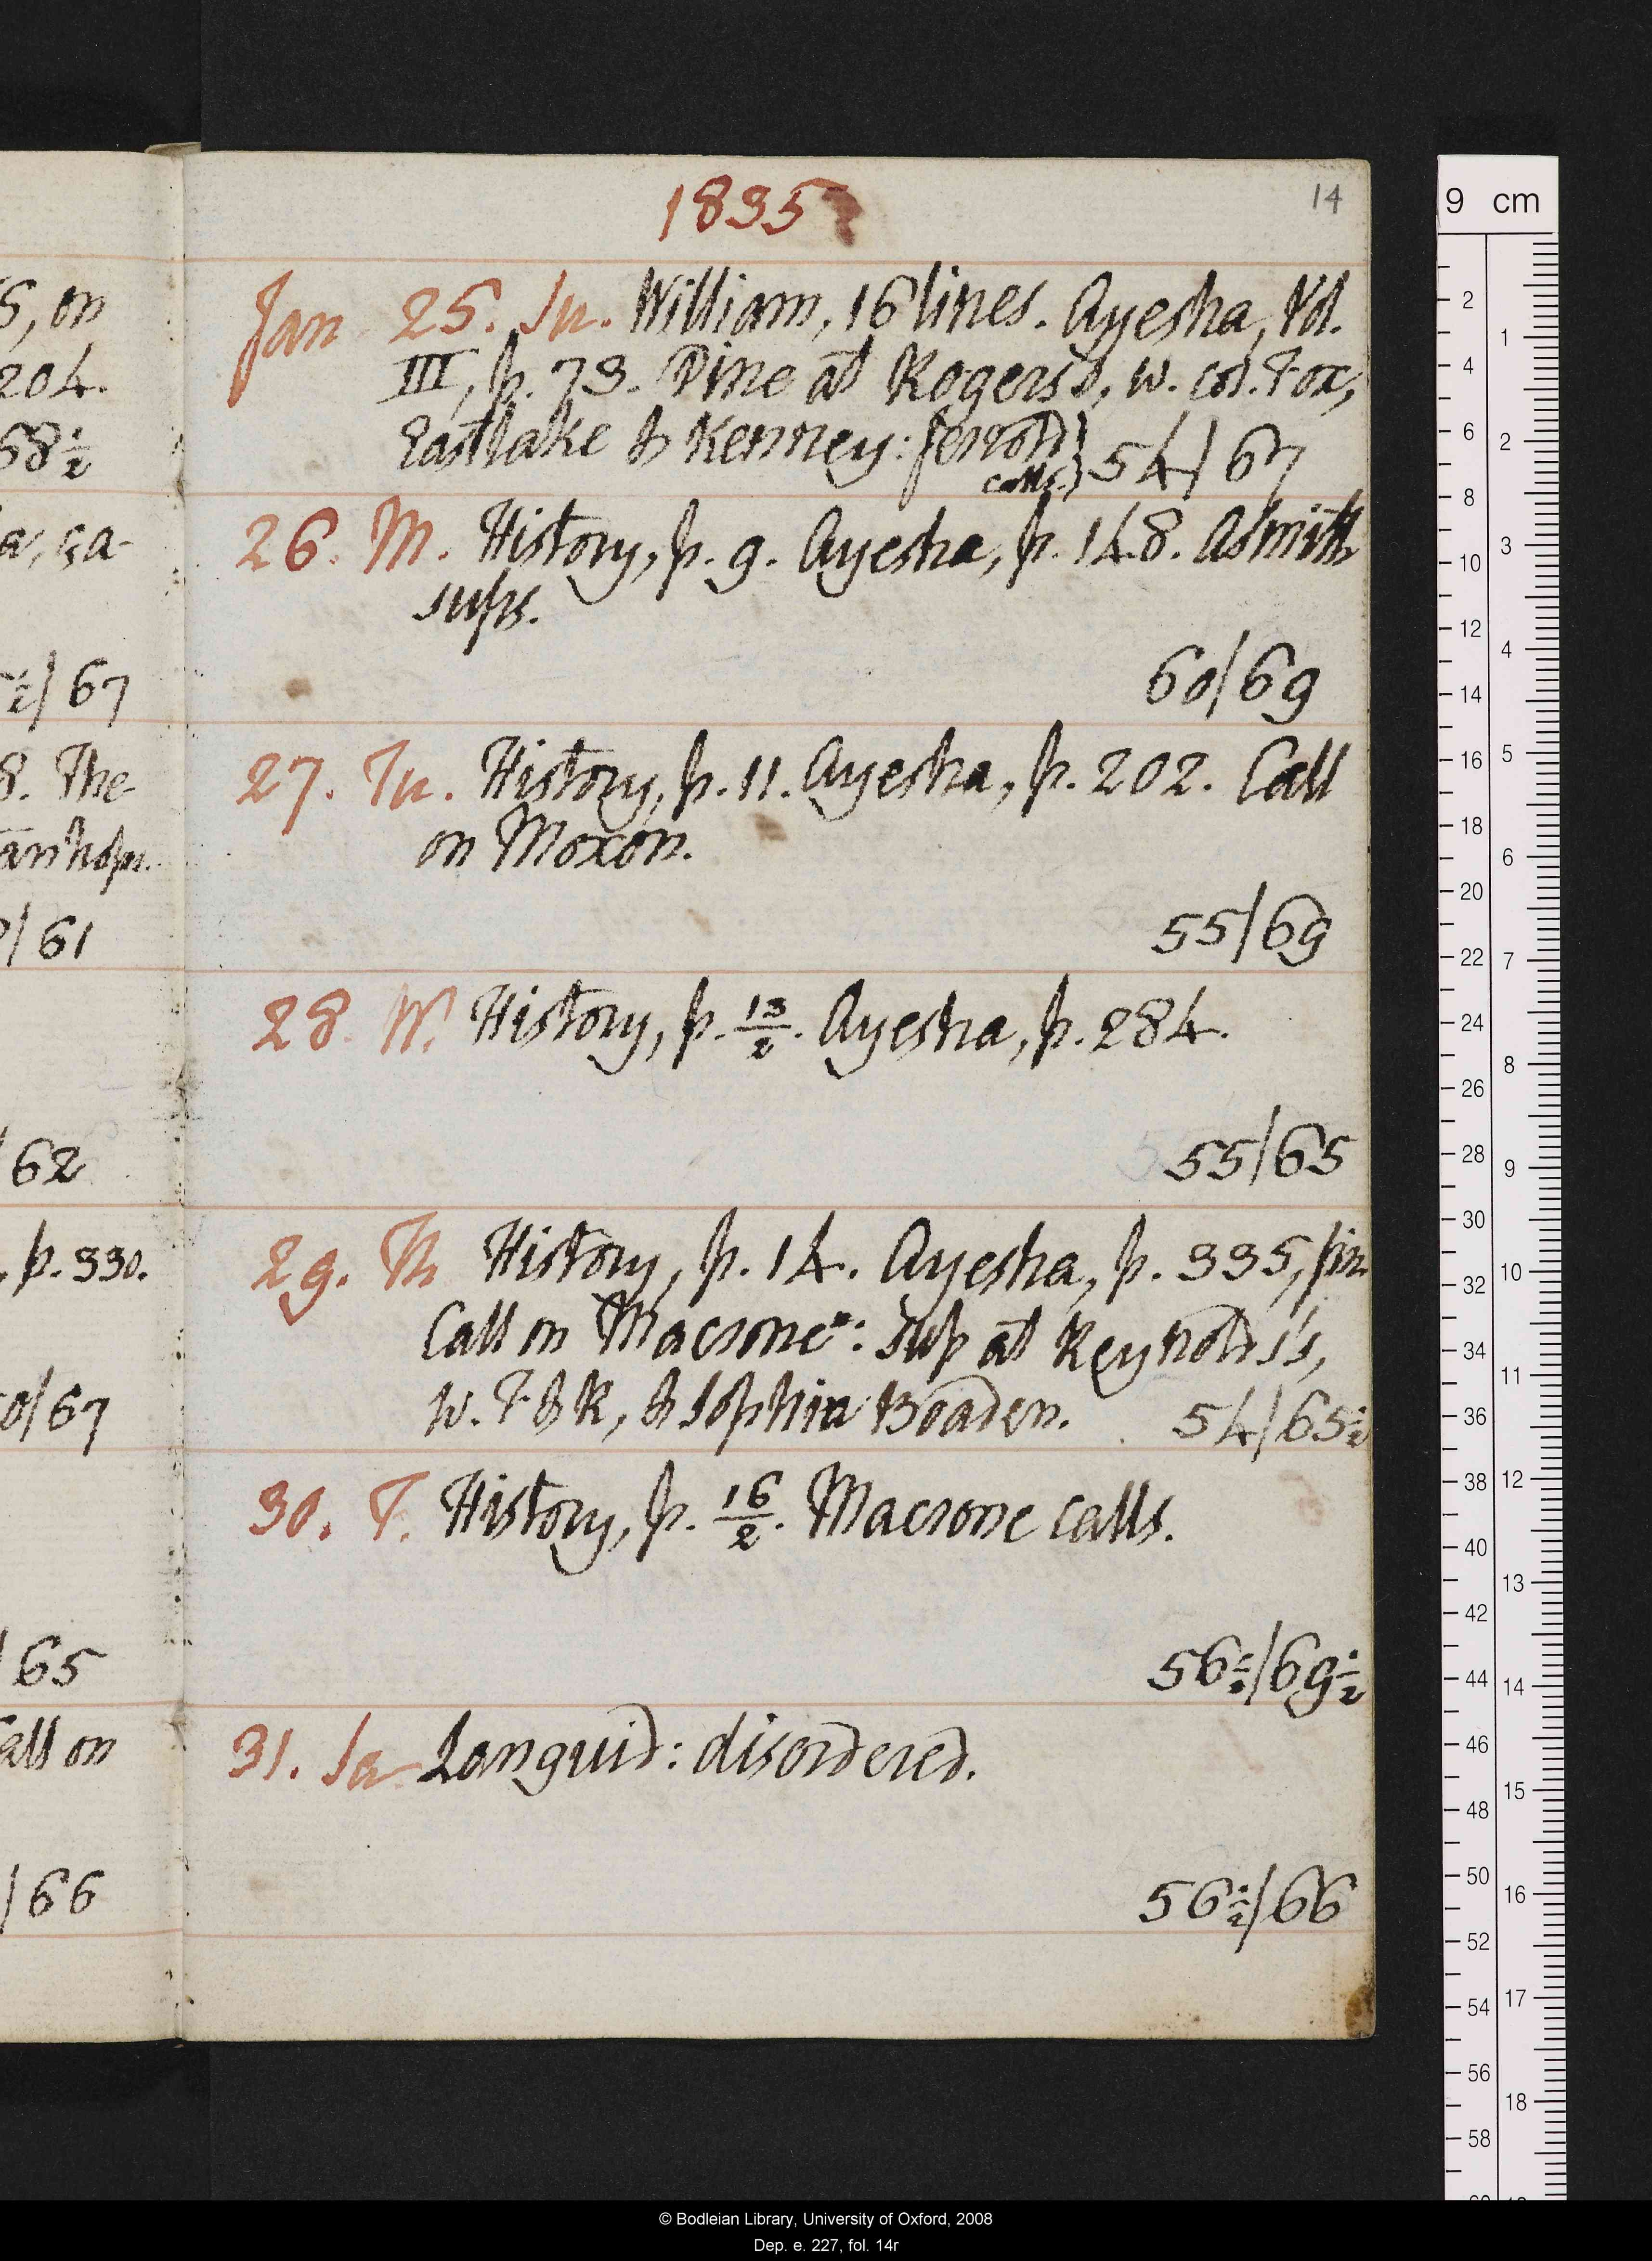 1835
14
Jan 25. Su. William, 16 lines. Ayesha, Vol.
III, p. 73. Dine at Rogers's, w. col. Fox,
Eastlake & Kenney: Jerrold
calls.} 54/67
26. M. History, p. 9. Ayesha, p. 148. Asmith
sups.
60/69
27. Tu. History, p. 11. Ayesha, p. 202. Call
on Moxon.
55/69
28. W. History, p. 13/2. Ayesha, p. 284.
55/65
29. Th History, p. 14. Ayesha, p. 335, fin.
Call on Macrone*: sup at Reynolds's,
w. F & R, & Sophia Boaden. 54/65½
30. F. History, p. 16/2. Macrone calls.
56½/69½
31. Sa Languid: disordered.
56½/66
S, on
204.
58½
a, ça-
½/67
8. The
anhope.
/61
62
, p. 330.
0/67
65
all on
/66
9 cm
2
4
6
8
10
12
14
16
18
20
22
24
26
28
30
32
34
36
38
40
42
44
46
48
50
52
54
56
58
1
2
3
4
5
6
7
8
9
10
11
12
13
14
15
16
17
18
© Bodleian Library, University of Oxford, 2008
Dep. e. 227, fol. 14r